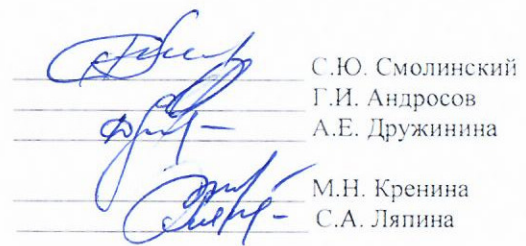 С.Ю. Смолинский
Г.И. Андросов
А.Е. Дружинина
М.Н. Кренина
С.А. Ляпина